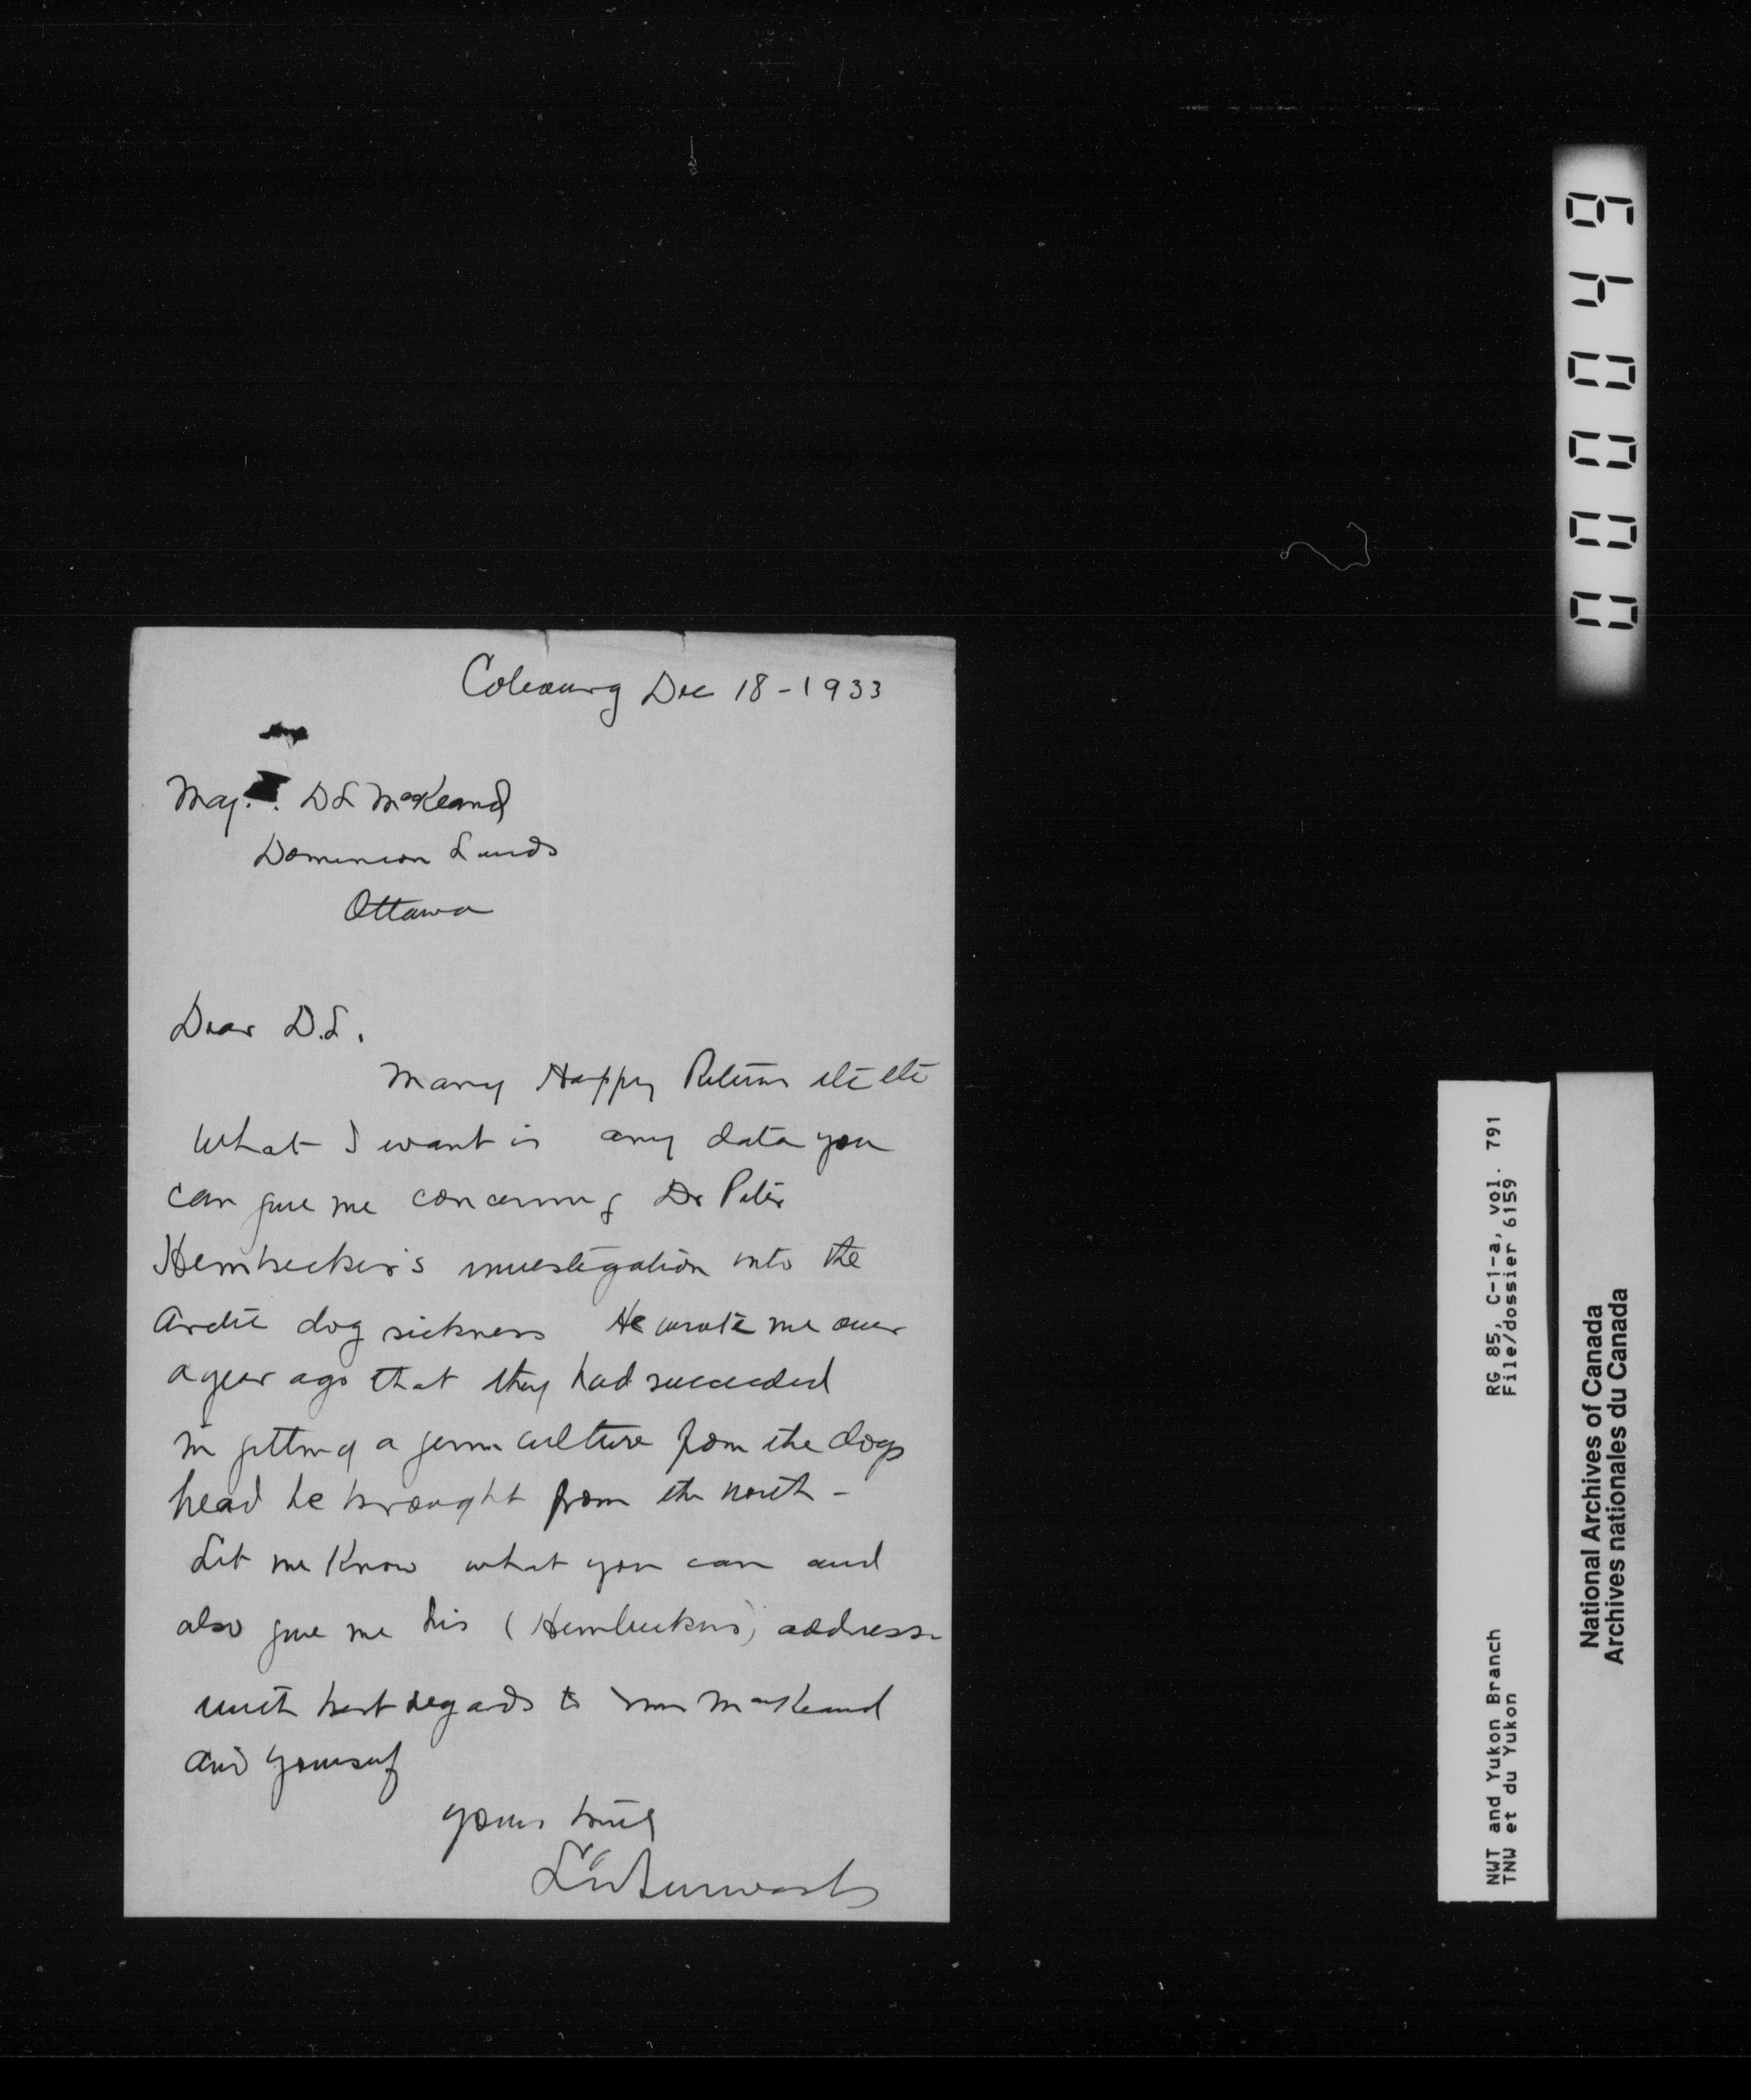 Cobourg Dec 18-1933
Maj. D L McKeand
Dominion Lands
Ottawa
Dear D.L.
Many Happy Returns etc etc
What I want is any data you
can give me concerning Dr Peter
Heinbecker's investigation into the
Arctic dog sickness He wrote me over
a year ago that they had succeeded
in getting a germ culture from the dogs
head he brought from the north -
Let me know what you can and
also give me his (Heinbeckers) address
with best regards to Mrs McKeand
and yourself
yours truly
L T Burwash
000046
NWT and Yukon Branch RG 85, C-1-a, vol. 791
TNW et du Yukon File/dossier 6159
National Archives of Canada
Archives nationales du Canada